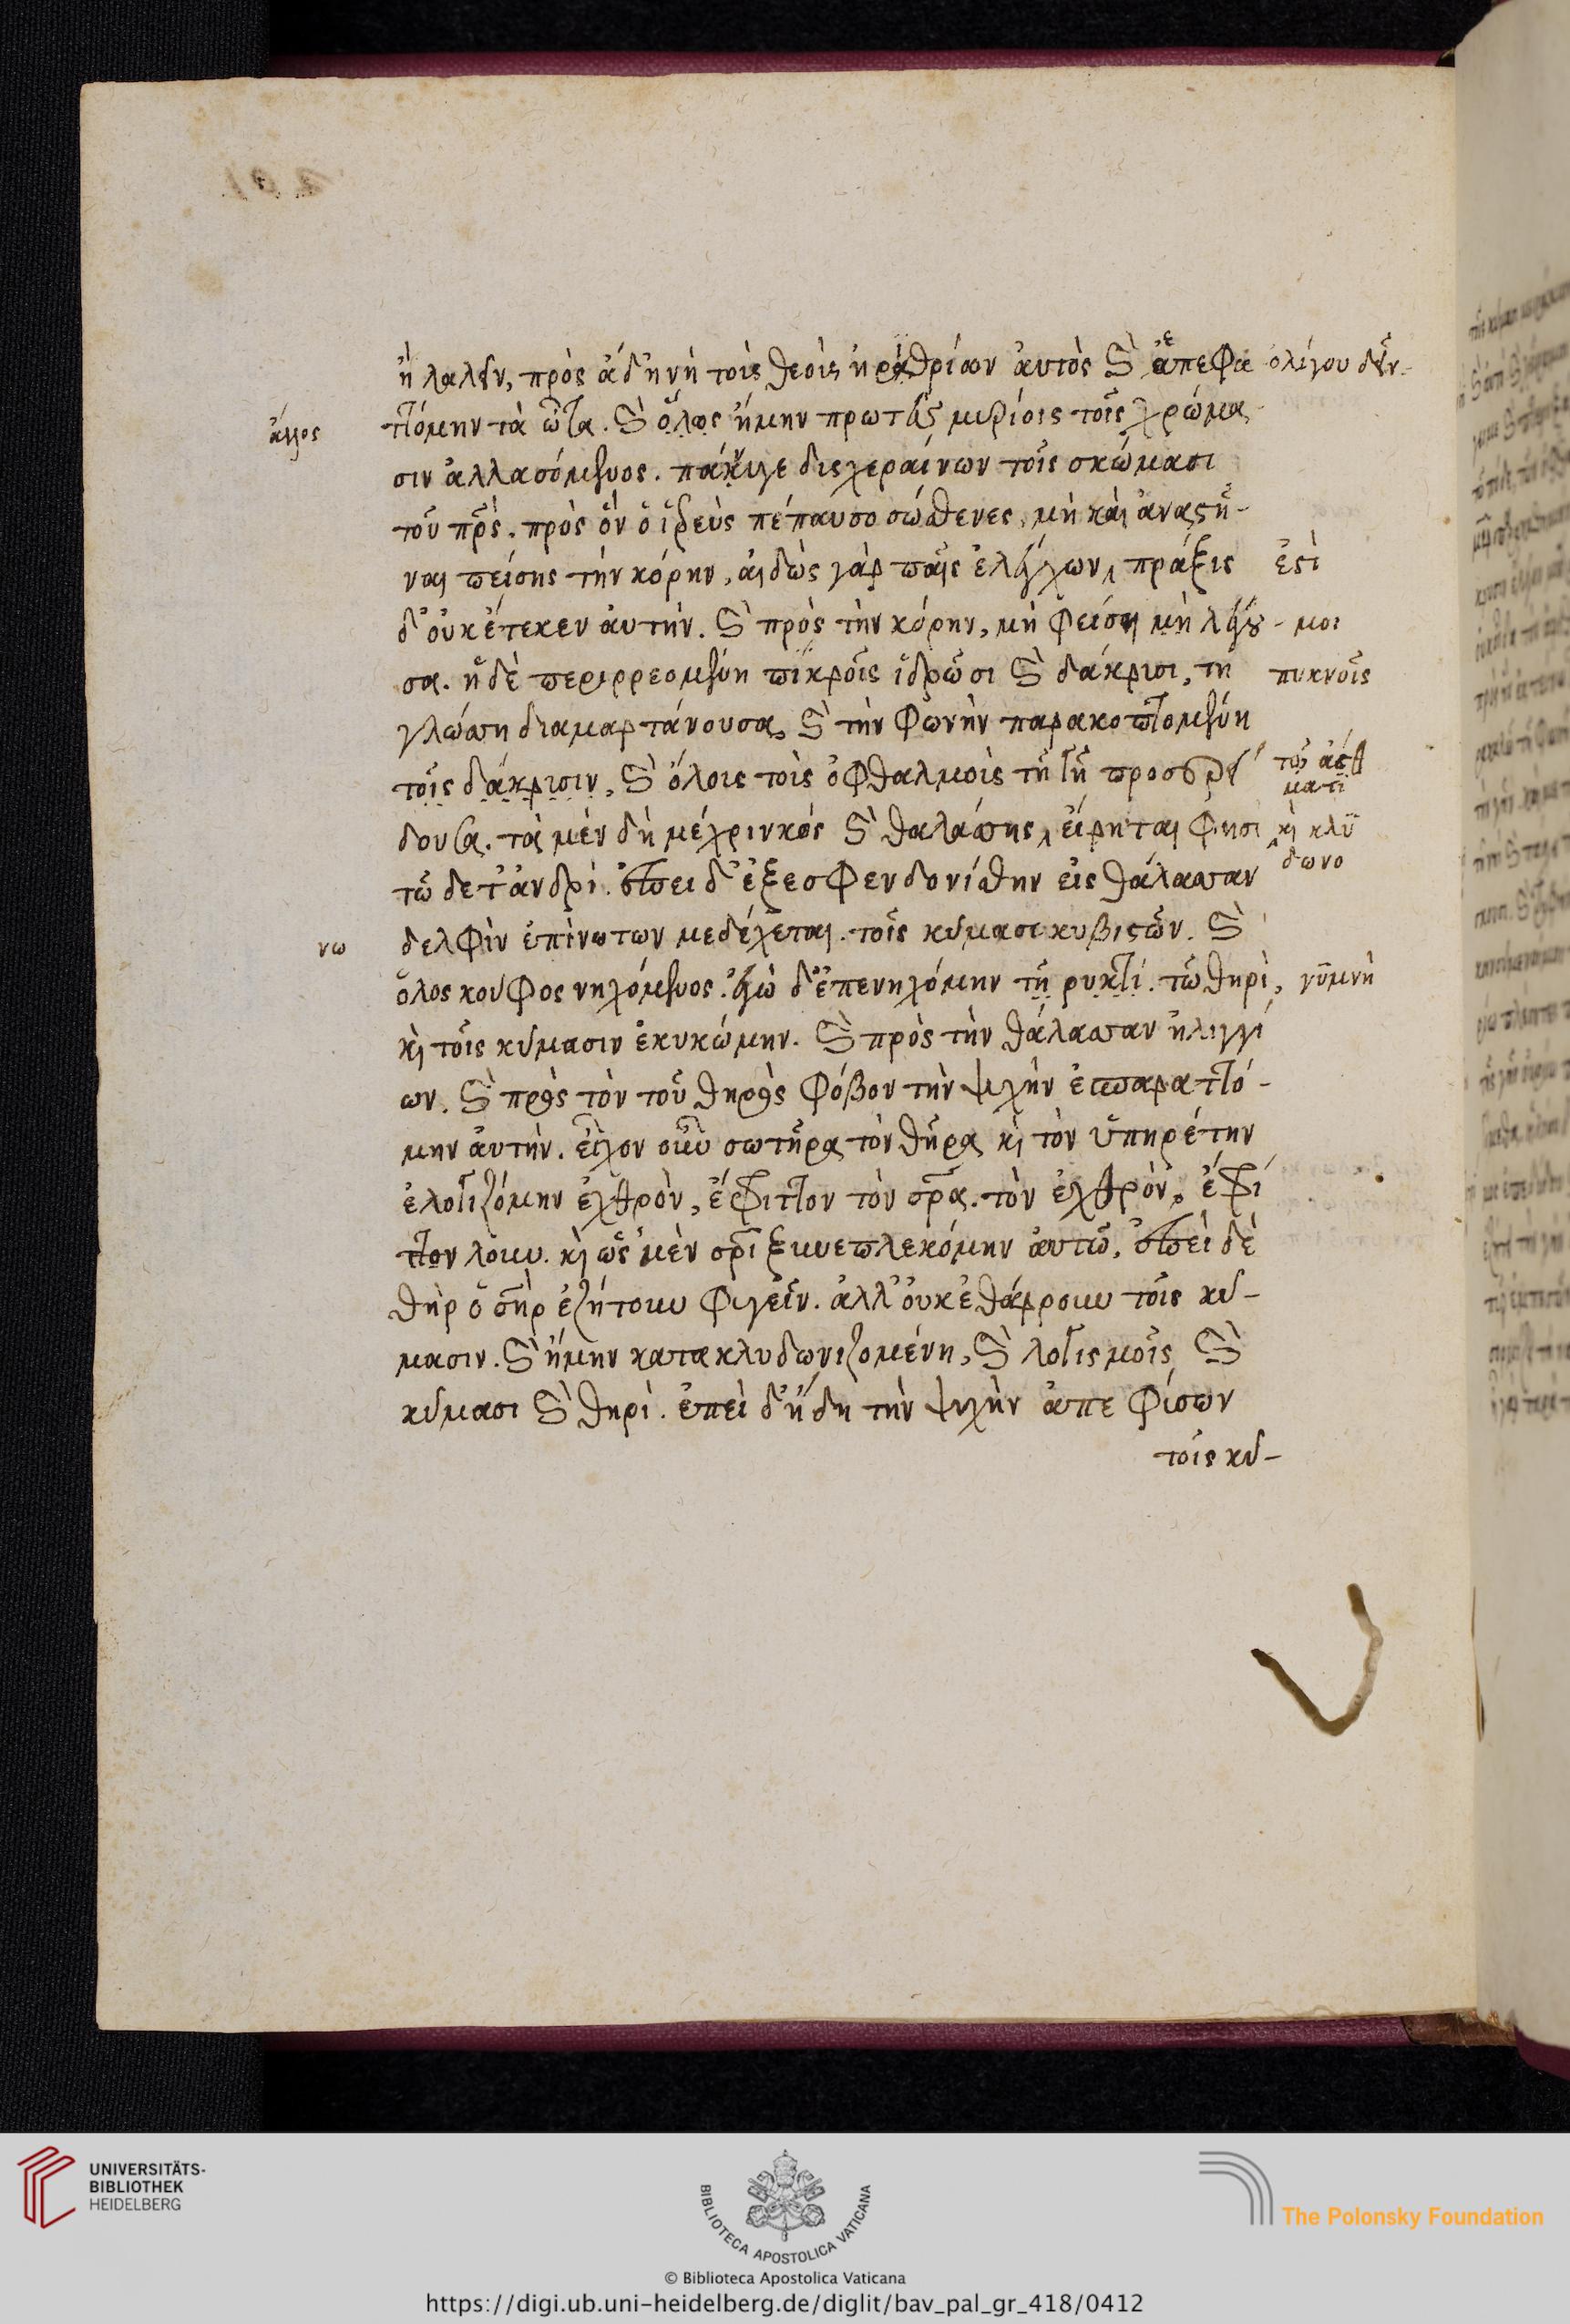 ἢ λαλεῖν, πρὸς ἃ δηνὴ τοῖς θεοῖς ἠρυθρίων αὐτὸς καὶ ἀπεφρα ὀλίγου δεῖν
τιόμην τὰ ὦτα. καὶ ὅλος ἤμην πρωτεὺς μυρίοις τοῖς χρώμα
ἄλλος
σιν ἀλλασόμενος. δυσχεραίνων τοῖς σκώμασι
τοῦ πρς. πρὸς ὃν ὁ ἱερεὺς πέπαυσο σώσθενες, μὴ καὶ ἀναστῆ-
ναι πείσης τὴν κόρην, αἰδὼς γὰρ παῖς ἐλέγχων, πράξις ἐστὶ
δ' οὐκ ἔτεκεν αὐτήν. καὶ πρὸς τὴν κόρην, μὴ φείση μοι
σα. ἡ δὲ περιρρεομένη πικροῖς ἱδρῶσι καὶ δάκρισι, τῆ πυκνοῖς
γλώττη διαμαρτάνουσα, καὶ τὴν φωνὴν παρακοπτομένη
τοῖς δάκρισιν, καὶ ὅλοις τοῖς ὀφθαλμοῖς τῆ γῆ προσερεί
μα τι
δουσα. τὰ μὲν δὴ μέχρι νηὸς καὶ θαλάττης, εἴρηται φησι καὶ κλύ
δωνο
τῶδε τἀνδρί. ἐπεὶ δ' ἐξεσφενδονίσθην εἰς θάλατταν
δελφὶν ἐπὶ νώτων με δέχεται. τοῖς κύμασι κυβιστῶν. καὶ
νω
ὅλος κοῦφος νηχόμενος. ἐγὼ δ' ἐπενηχόμην τῆ ρυκτί. τῶ θηρὶ, γυμνὴ
καὶ τοῖς κύμασιν ἐκυκώμην. καὶ πρὸς τὴν θάλατταν ἠλιγγί
ων. καὶ πρὸς τὸν τοῦ θηρὸς φόβον τὴν ψυχὴν ἐσπαραττό-
μην αὐτήν. εἶχον οὖν σωτῆρα τὸν θῆρα καὶ τὸν ὑπηρέτην
ἐλογιζόμην ἐχθρὸν, ἐφίλουν τὸν σρα. τὸν ἐχθρὸν, ἐμί
σουν. καὶ ὡς μὲν σρι ξυνεπλεκόμην αὐτῶ, ἐπεὶ δὲ
θὴρ ὁ σὴρ ἐζήτουν φυγεῖν. ἀλλ' οὐκ ἐθάρρουν τοῖς κύ-
μασιν. καὶ ἤμην κατακλυδωνιζομένη, καὶ λογισμοῖς καὶ
κύμασι καὶ θηρί. ἐπεὶ δ' ἤδη τὴν ψυχὴν ἀπεφύσων
τοῖς κύ-
UNIVERSITÄTS-
BIBLIOTHEK
HEIDELBERG
BIBLIOTECA APOSTOLICA VATICANA
The Polonsky Foundation
© Biblioteca Apostolica Vaticana
https://digi.ub.uni-heidelberg.de/diglit/bav_pal_gr_418/0412